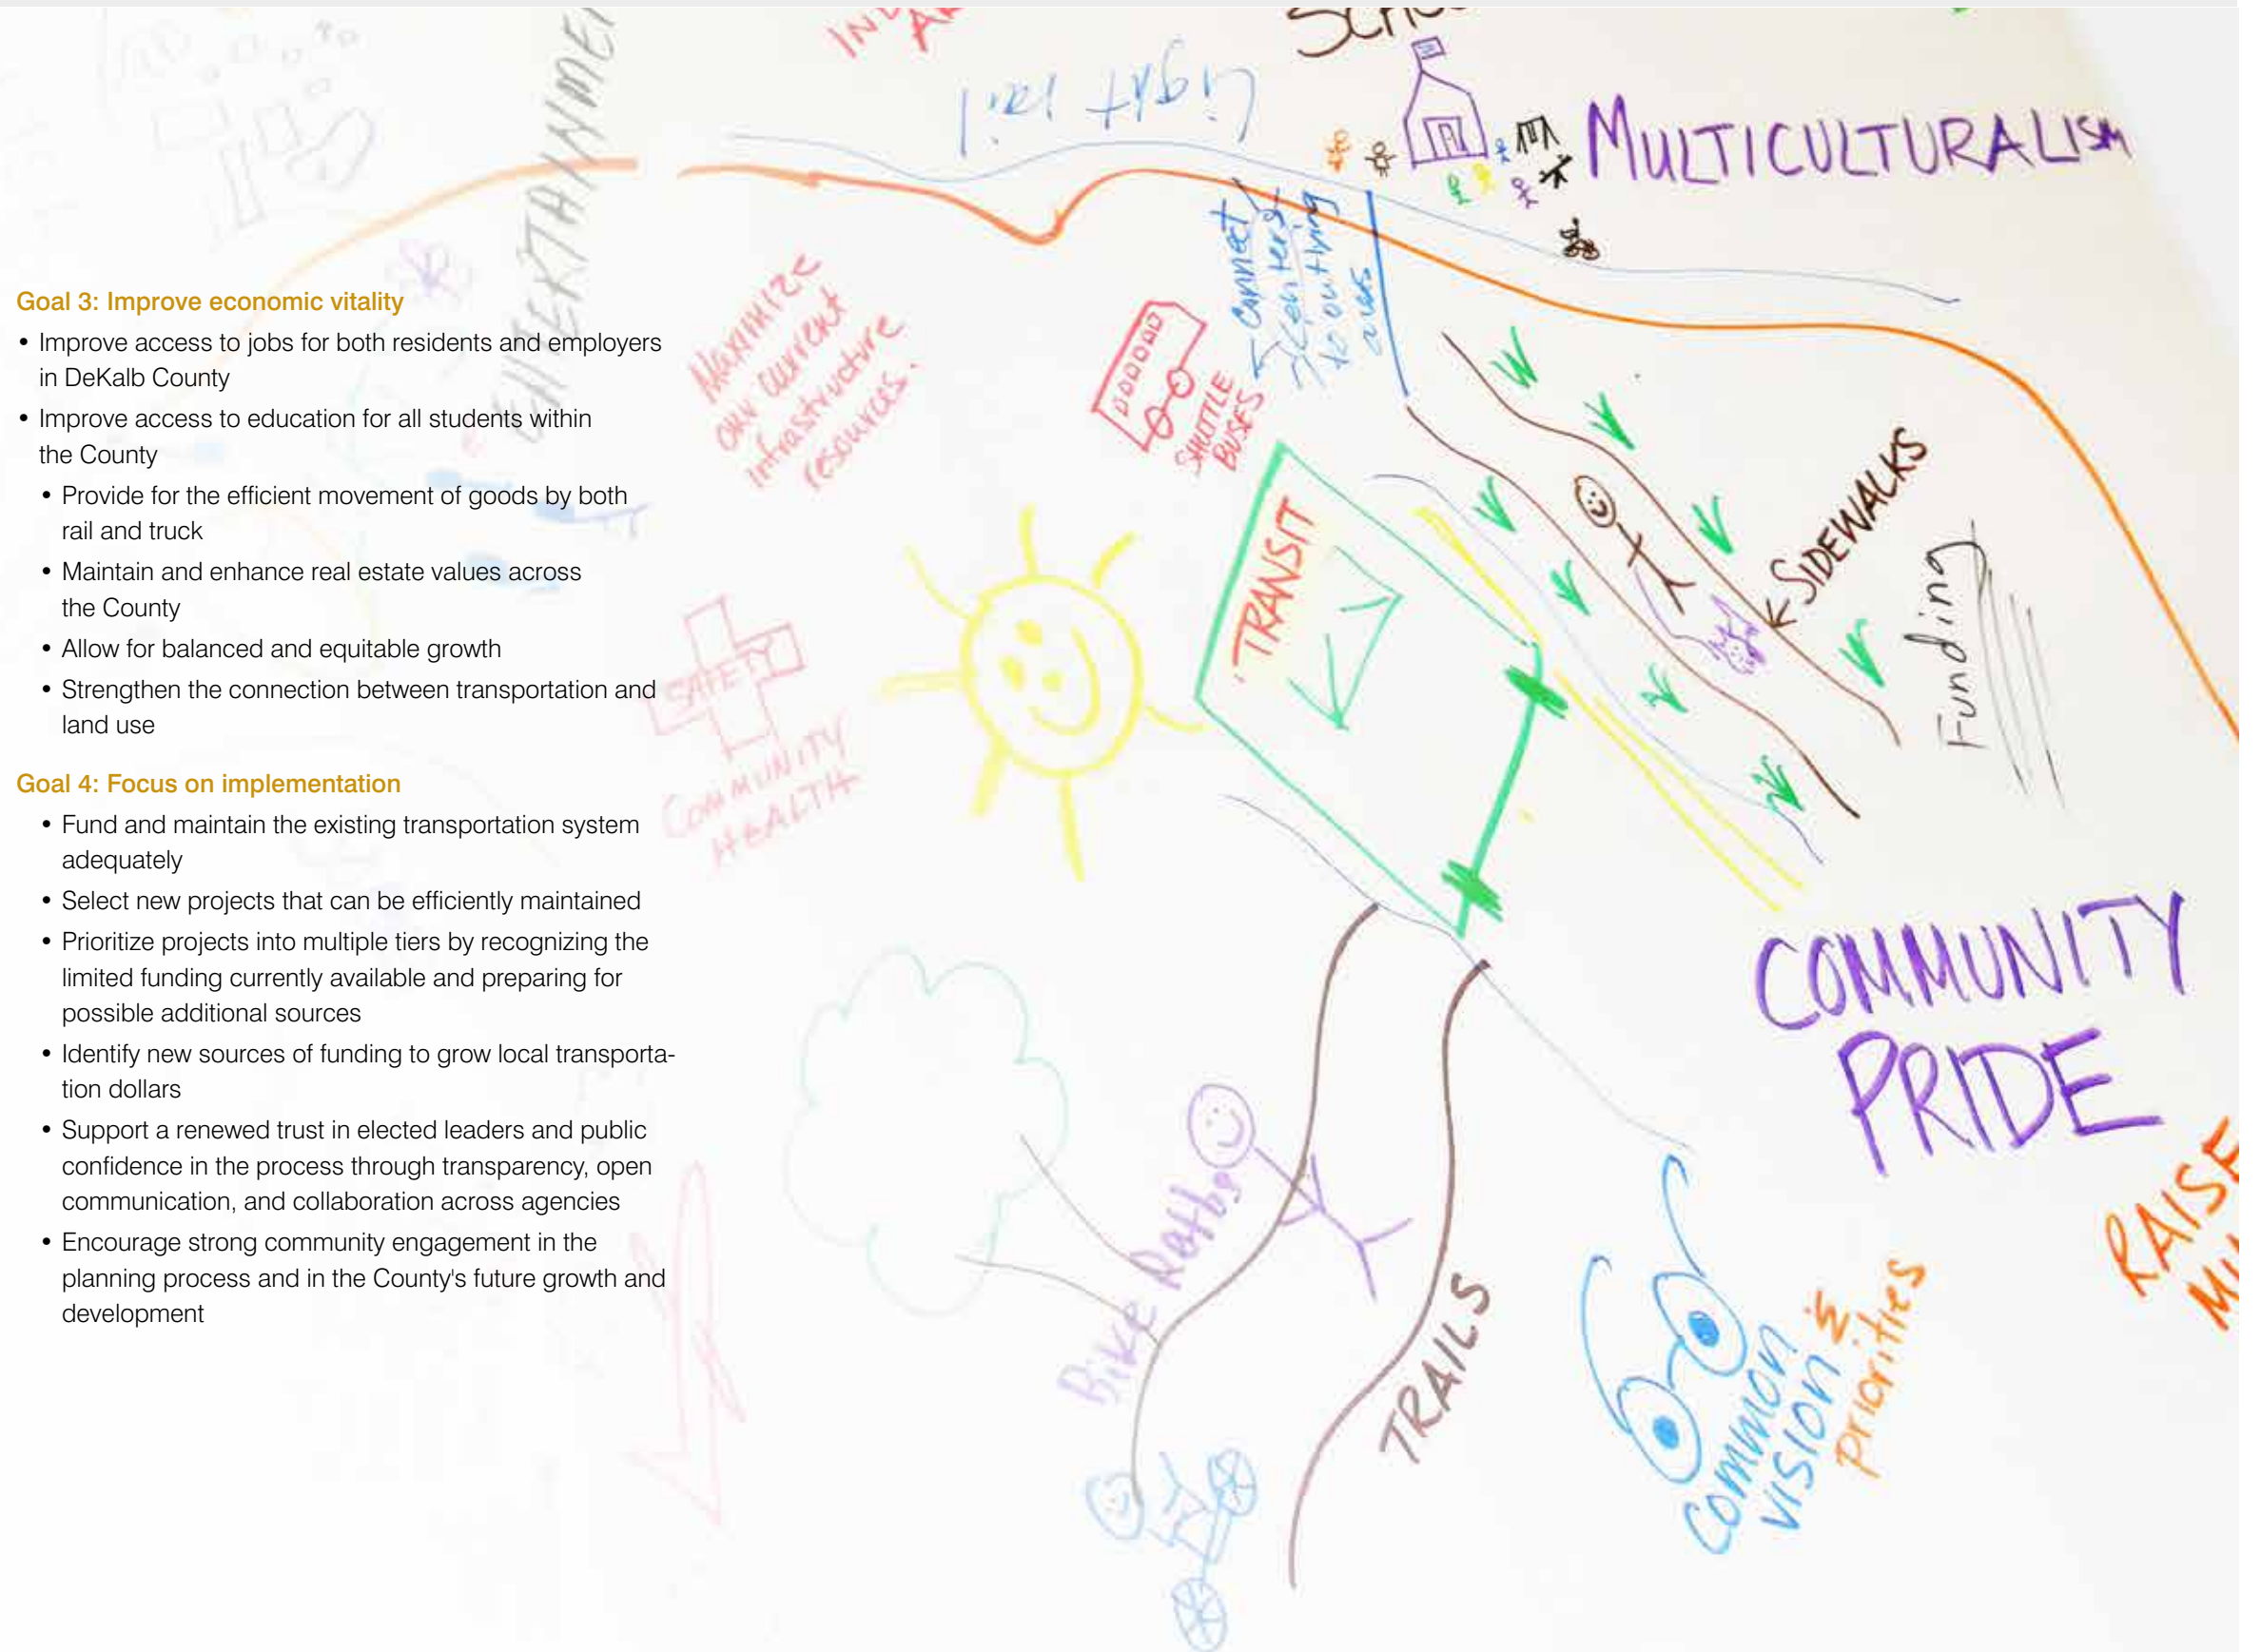 Goal 3: Improve economic vitality
• Improve access to jobs for both residents and employers
in DeKalb County
• Improve access to education for all students within
the County
• Provide for the efficient movement of goods by both
rail and truck
• Maintain and enhance real estate values across
the County
• Allow for balanced and equitable growth
• Strengthen the connection between transportation and
land use
Goal 4: Focus on implementation
• Fund and maintain the existing transportation system
adequately
• Select new projects that can be efficiently maintained
• Prioritize projects into multiple tiers by recognizing the
limited funding currently available and preparing for
possible additional sources
• Identify new sources of funding to grow local transporta-
tion dollars
• Support a renewed trust in elected leaders and public
confidence in the process through transparency, open
communication, and collaboration across agencies
• Encourage strong community engagement in the
planning process and in the County's future growth and
development
Light rail
MULTICULTURALISM
Connect
Centers
to outlying
areas
MAXIMIZE
our current
infrastructure
resources.
SHUTTLE
BUSES
TRANSIT
SIDEWALKS
Funding
SAFETY
COMMUNITY
HEALTH
COMMUNITY
PRIDE
RAISE
Bike Paths
TRAILS
COMMON
VISION &
priorities